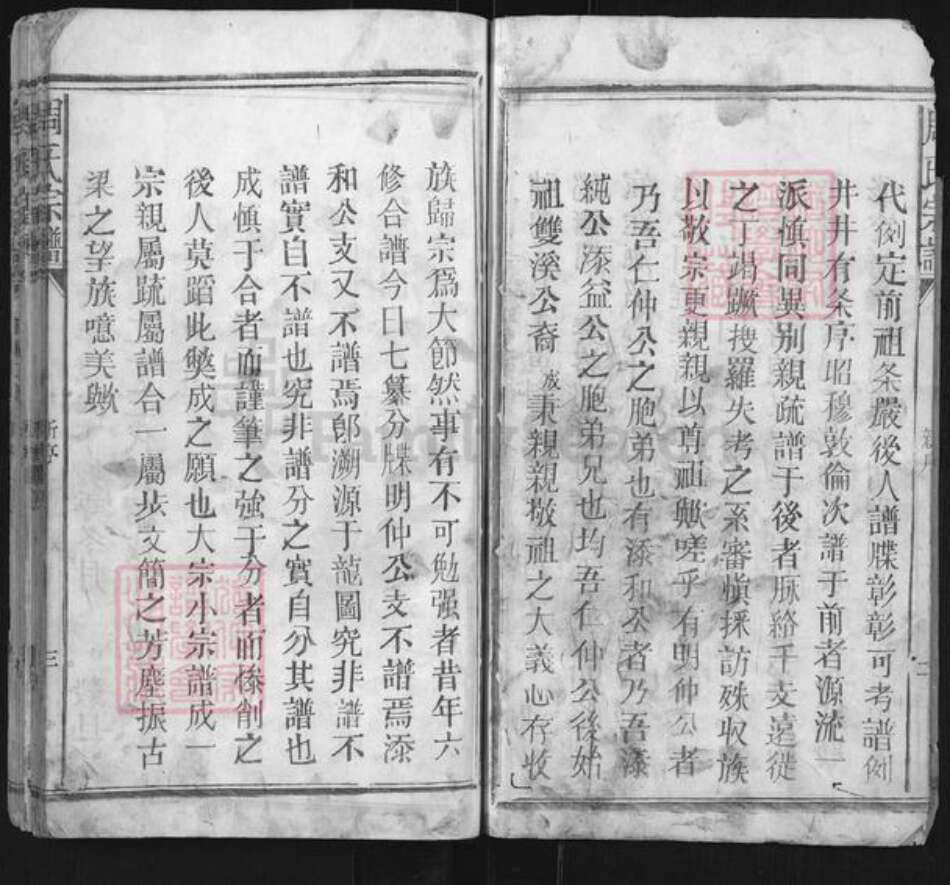 代例定前祖条嚴後人譜牒彰彰可考譜例
井井有条序昭穆敦倫次譜于前者源流一
派慎同異別親疏譜于後者脉絡千支遠徙
之丁竭蹶搜羅失考之系審慎採訪殊収族
以敬宗更親親以尊祖歟嗟乎有明仲公者
乃吾仁仲公之胞弟也有添和公者乃吾添
純公添益公之胞弟兄也均吾仁仲公後始
祖雙溪公裔成秉親親敬祖之大義心存收
族歸宗爲大節然事有不可勉强者昔年六
修合譜今日七纂分牒明仲公支不譜焉添
和公支又不譜焉郎溯源于龍圖究非譜不
譜實自不譜也究非譜分之實自分其譜也
成慎于合者而謹筆之強于分者而慘削之
後人莫蹈此獘成之願也大宗小宗譜成一
宗親屬疏屬譜合一屬步文簡之芳塵振古
梁之望族噫美歟
周氏宗譜
新序
三